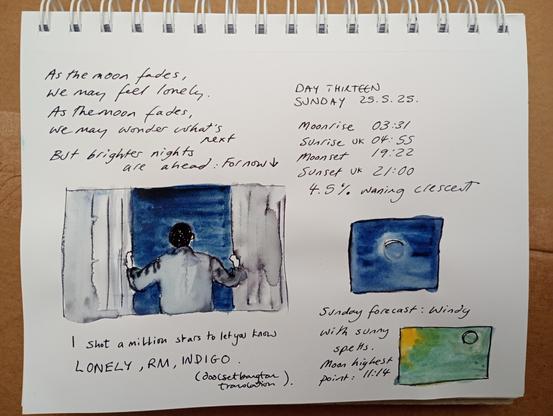 As the moon fades,
we may feel lonely.
As the moon fades,
we may wonder what's
next
But brighter nights
are ahead: For now ↓
I shot a million stars to let you know
LONELY, RM, INDIGO.
(doolsetbangtan
translation).
DAY THIRTEEN
SUNDAY 25.5.25.
Moonrise 03:31
Sunrise UK 04:55
Moonset 19:22
Sunset UK 21:00
4.5% waning crescent
Sunday forecast: Windy
with sunny
spells.
Moon highest
point: 11:14